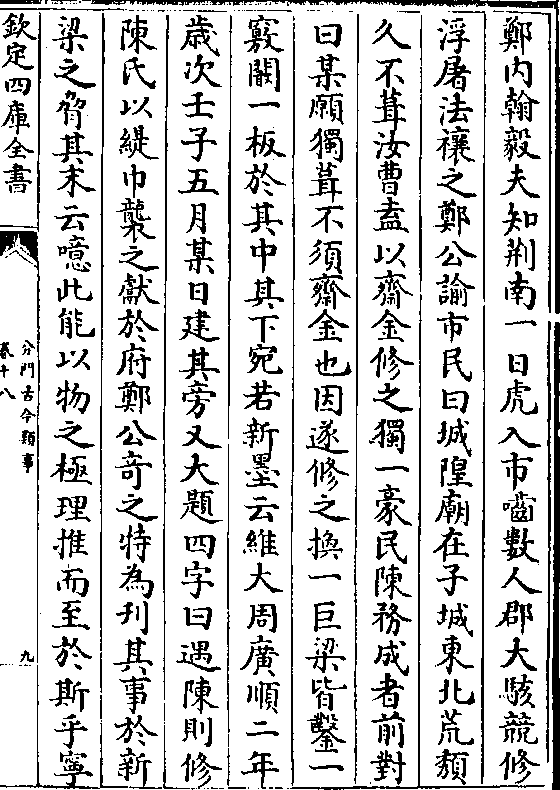 鄭内翰毅夫知荆南一日虎入市嚙數人郡大駭競修
浮屠法禳之鄭公諭市民曰城隍廟在子城東北荒頽
久不葺汝曹盍以齋金修之獨一豪民陳務成者前對
曰某願獨葺不須齋金也因遂修之換一巨梁皆鑿一
竅闕一板於其中其下宛若新墨云維大周廣順二年
歳次壬子五月某日建其旁又大題四字曰遇陳則修
陳氏以緹巾襲之獻於府鄭公竒之特為刊其事於新
梁之脅其末云噫此能以物之極理推而至於斯乎寧
欽定四庫全書
分門古今類事
卷十八
九